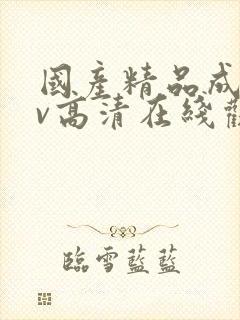 國產精品成
v高清在綫
臨雪藍藍